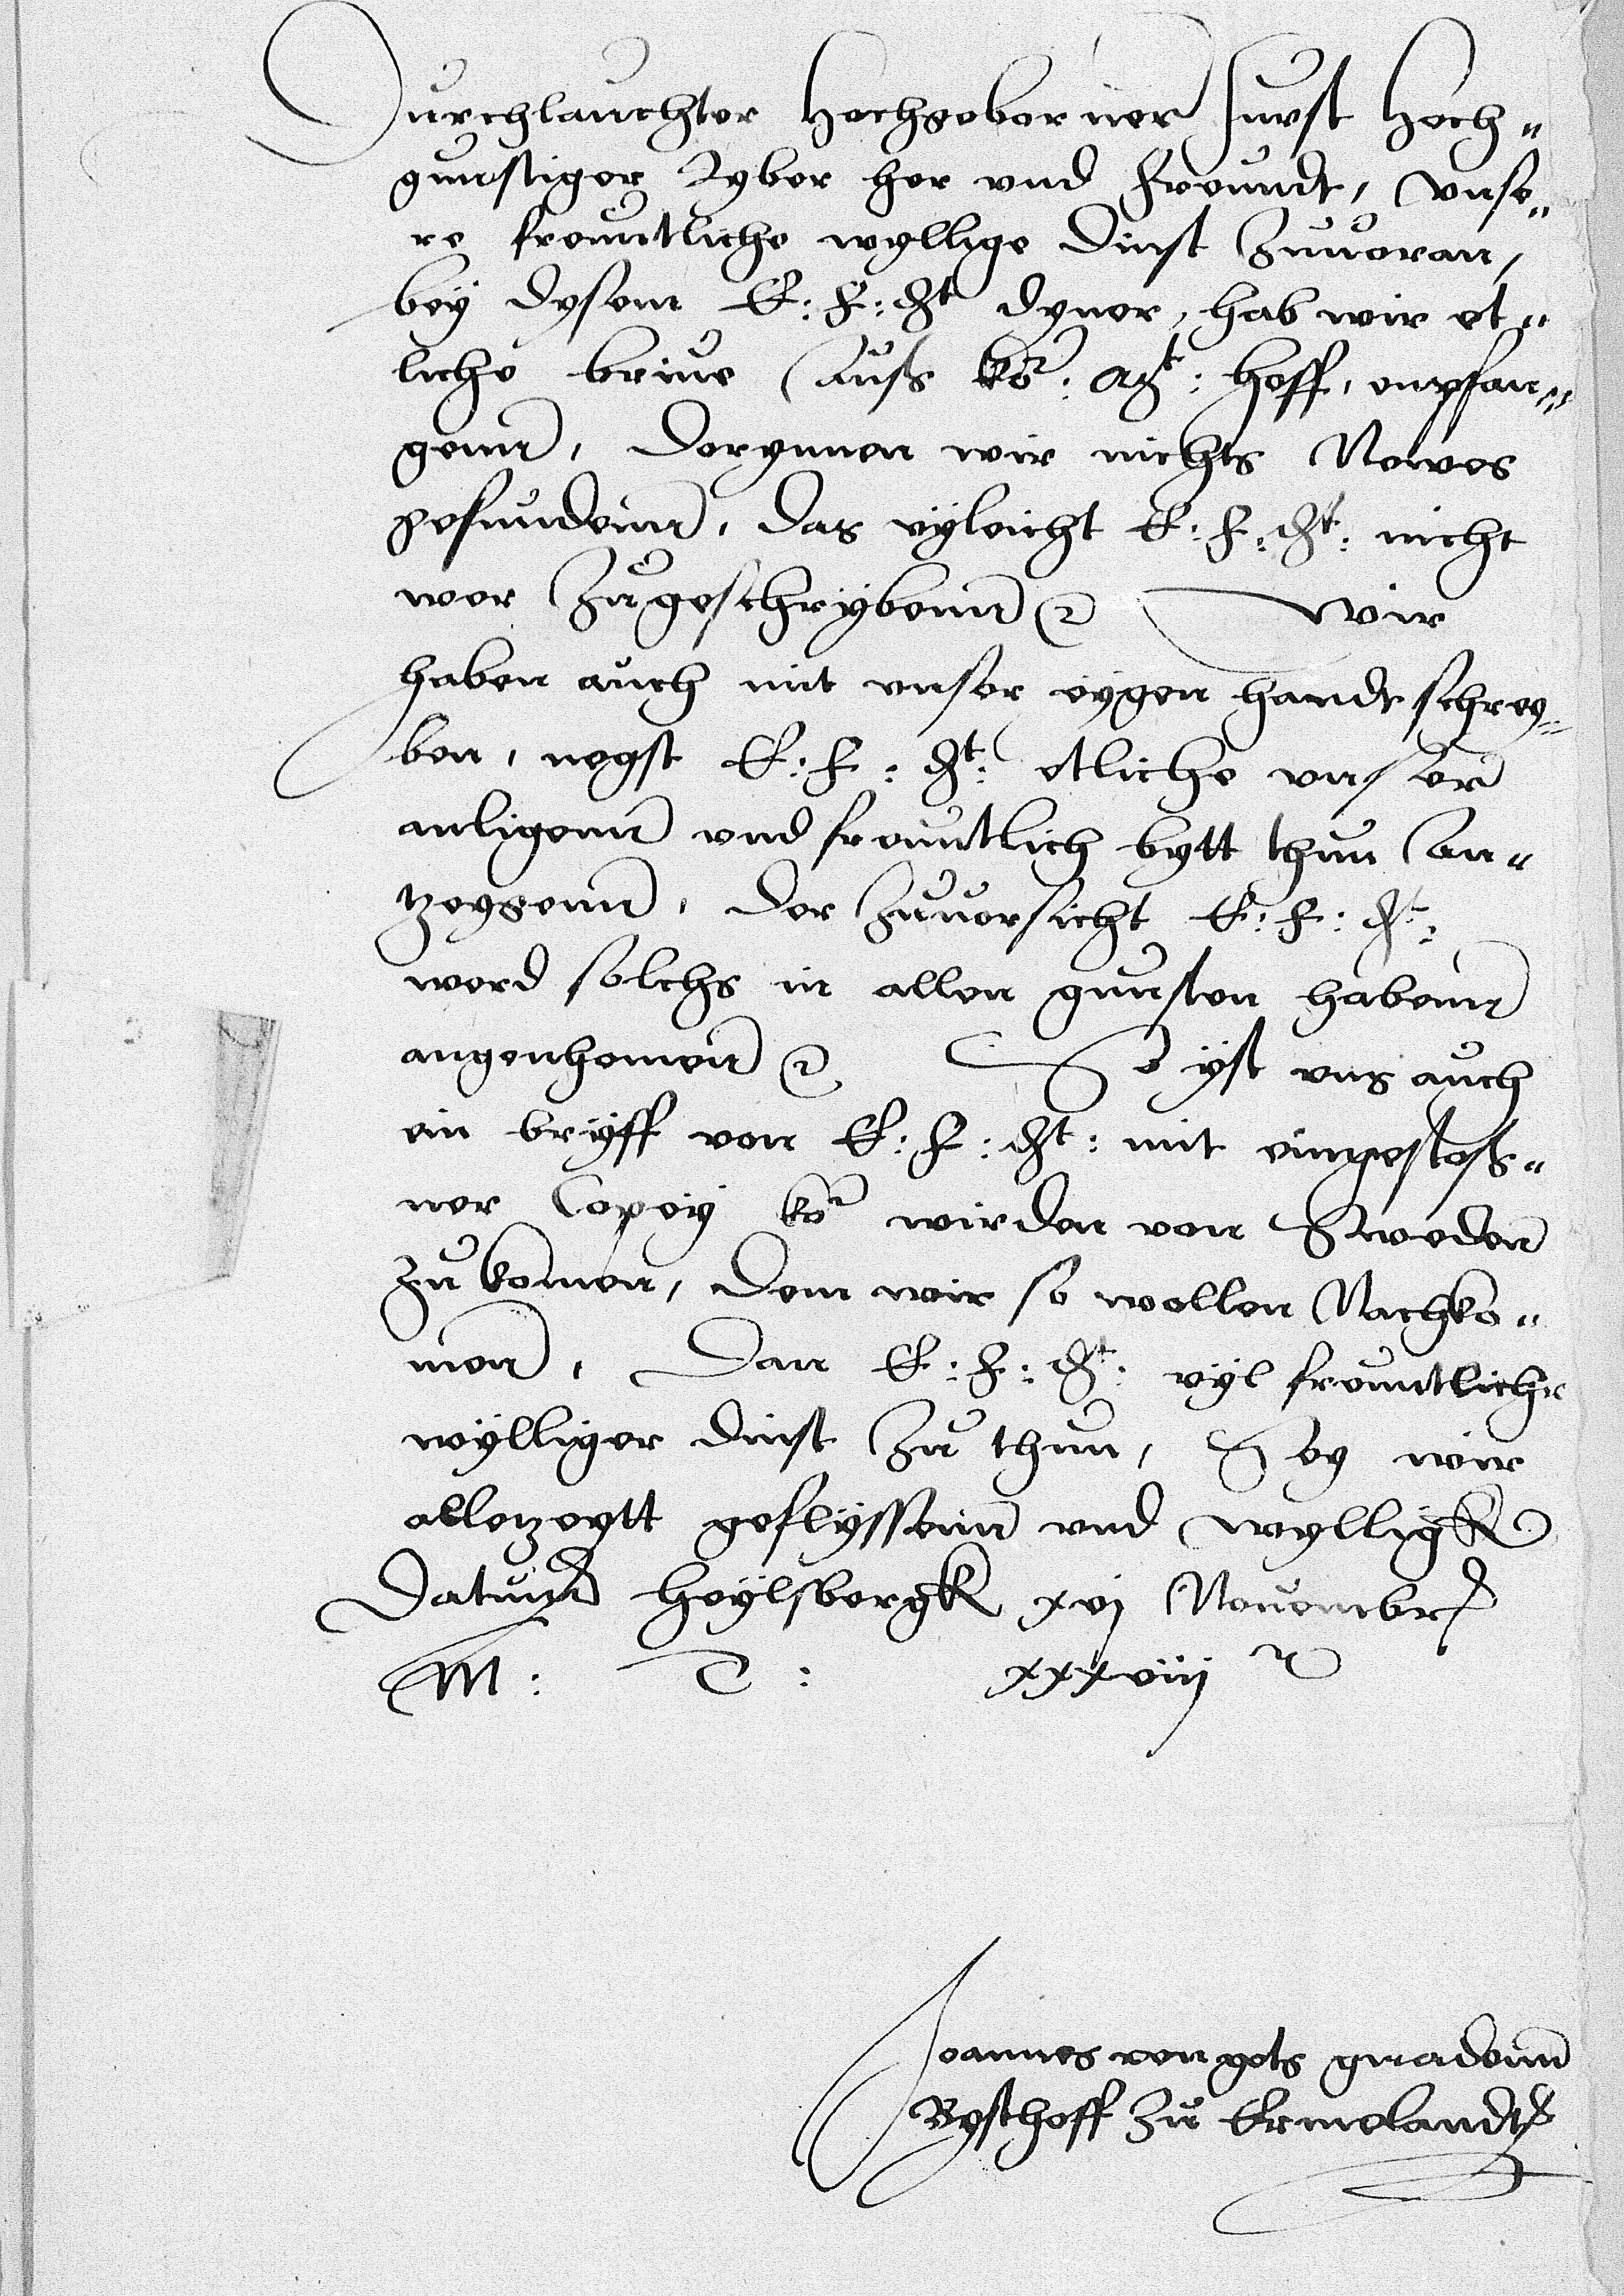 Durchlauchter Hochgeborner Furst Hoch„
gunstiger lyber her vnd freundt, vnse„
re freuntliche wyllige dinst zuuoran,
bey dysem E: F: Dt dyner, hab wir et„
liche briue auß ko: Mt: hoff, enpfan„
genn, dorynnen wir nichts Newes
gefundenn, das vyleicht E: F: Dt: nicht
wer zugeschrybenn etc Wir
haben auch mit vnser eygen handt schrey„
ben, negst E: F: Dt: etliche vnser
anligenn vnd freuntlich bytt thun an„
tzeygenn, der zuuorsicht E: F: Dt:
werd solchs in allen gunsten habenn
angenhomen etc Es yst vns auch
ein bryff von E: F: Dt: mit eingestoß„
ner Copey ko wirden von Sweden
zu komen, dem wir so wollen Nachko„
men, Dan E: F: Dt: vyl freuntlicher
wylliger dinst zu thun, Sey wir
alletzeytt geflyssenn vnd wylligk
Datum Heylsbergk xvj Nouembris
M: D: xxxviij etc
Joannes von gots gnadenn
Bysthoff zu Ermelandt etc